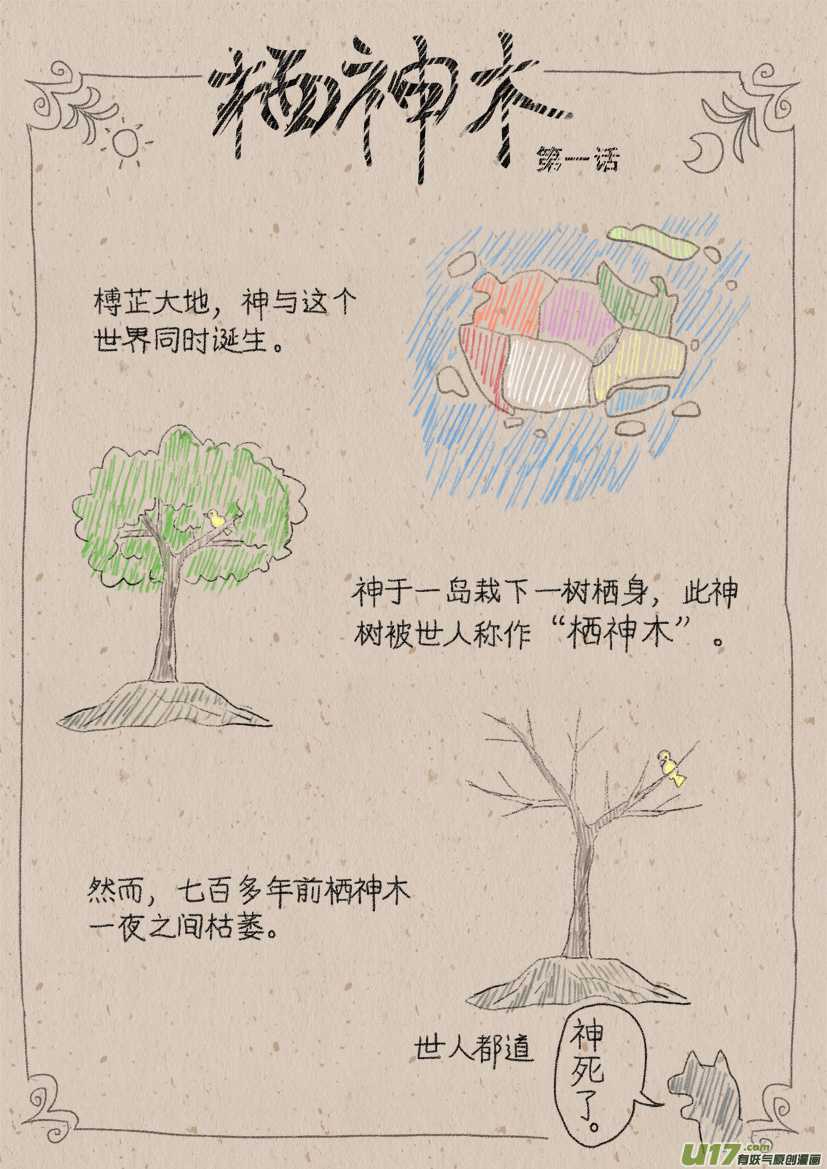 栖神木
第一话
榑芷大地，神与这个
世界同时诞生。
神于一岛栽下一树栖身，此神
树被世人称作“栖神木”。
然而，七百多年前栖神木
一夜之间枯萎。
世人都道
神死了。
U17.com
有妖气原创漫画